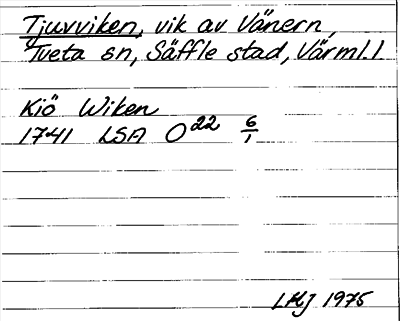 Tjuvviken, vik av Vänern,
Tveta sn, Säffle stad, Värml.l
Kiö Wiken
1741 LSA O22 6/1
LHJ 1975